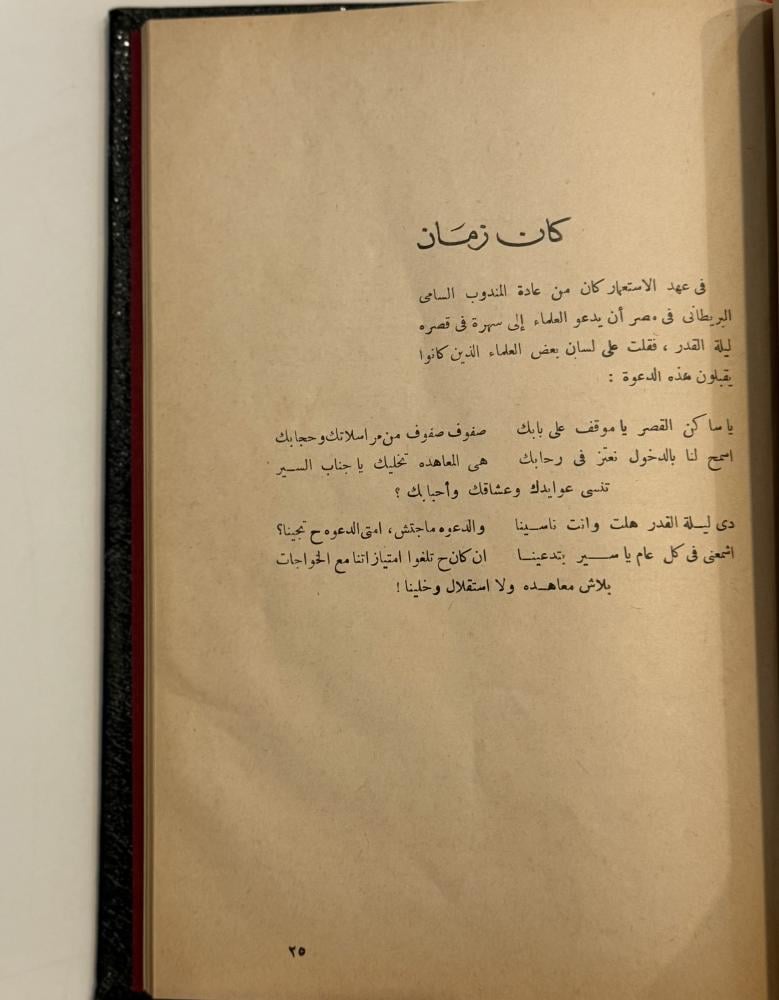 كان زمان
فى عهد الاستعمار كان من عادة المندوب السامى
البريطانى فى مصر أن يدعو العلماء إلى سهرة فى قصره
ليلة القدر ، فقلت على لسان بعض العلماء الذين كانوا
يقبلون هذه الدعوة :
يا ساكن القصر يا موقف على بابك صفوف صفوف من مراسلاتك وحجابك
اسمح لنا بالدخول نعتز فى رحابك هى المعاهده تخليك يا جناب السير
تنسى عوايدك وعشاقك وأحبابك ؟
دى ليلة القدر هلت وانت ناسينا والدعوه ماجتش، امتى الدعوه ح تجينا؟
اشمعنى فى كل عام يا سير بتدعينا ان كان ح تلغوا امتيازاتنا مع الخواجات
بلاش معاهده ولا استقلال وخلينا !
٢٥